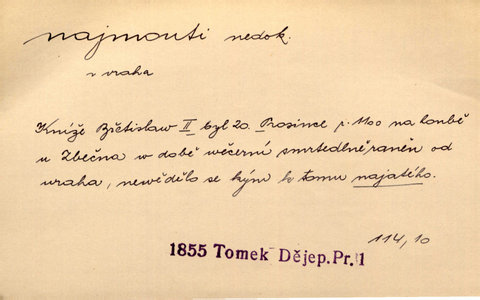 najmouti nedok.
v vraha
Kníže Břetislaw II byl 20. Prosince r. 1100 na lonbě
u Zbečna w době wěčerní smrtedlně raněn od
vraha, newědělo se kým k tomu najatého.
114, 10
1855 Tomek Dějep. Pr. 1